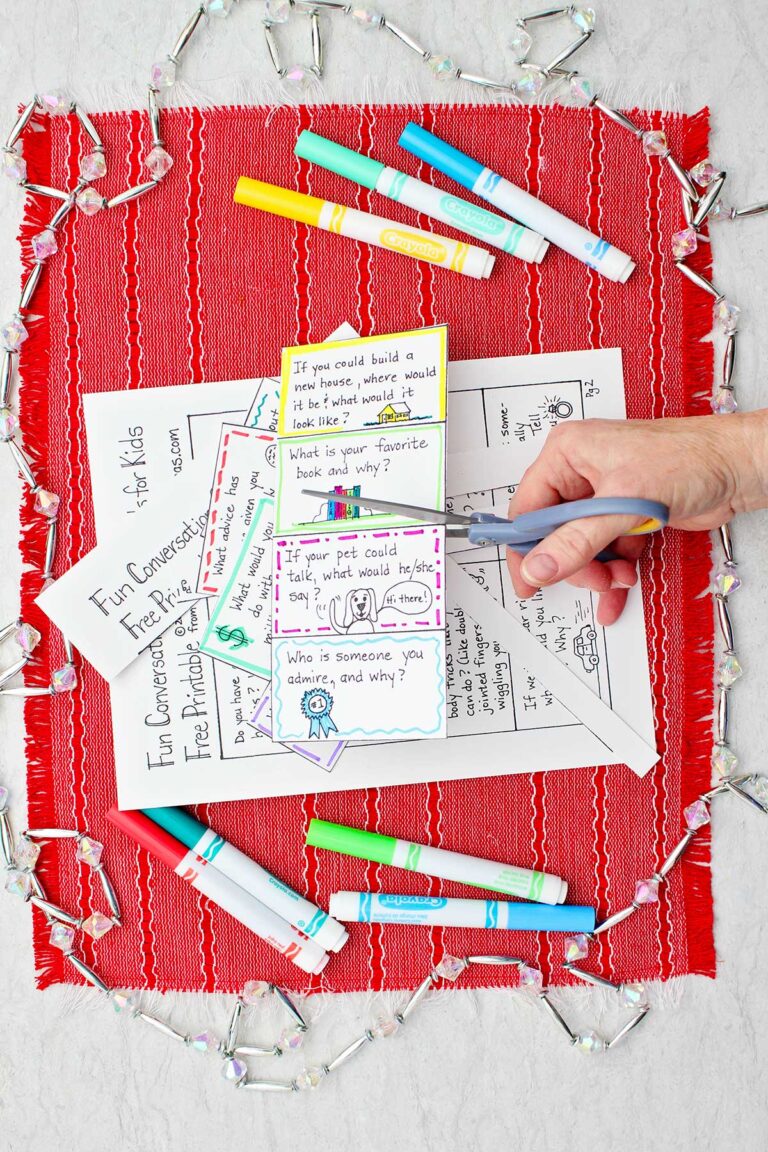 Crayola
Crayola
If you could build a
new house, where would
it be & what would it
look like?
What is your favorite
book and why?
If your pet could
talk, what would he/she
say?
Hi there!
Who is someone you
admire, and why?
#1
What advice has
given you
What would you
do with
$
Fun Conversa
Free Pri
s for Kids
as.com
Fun Conversa
Free Printable from
Do you have
Pg 2
: some-
ally
Tell
body tricks
can do? (Like doubl
jointed fingers
wiggling you
If we
Why?
Crayola
Crayola